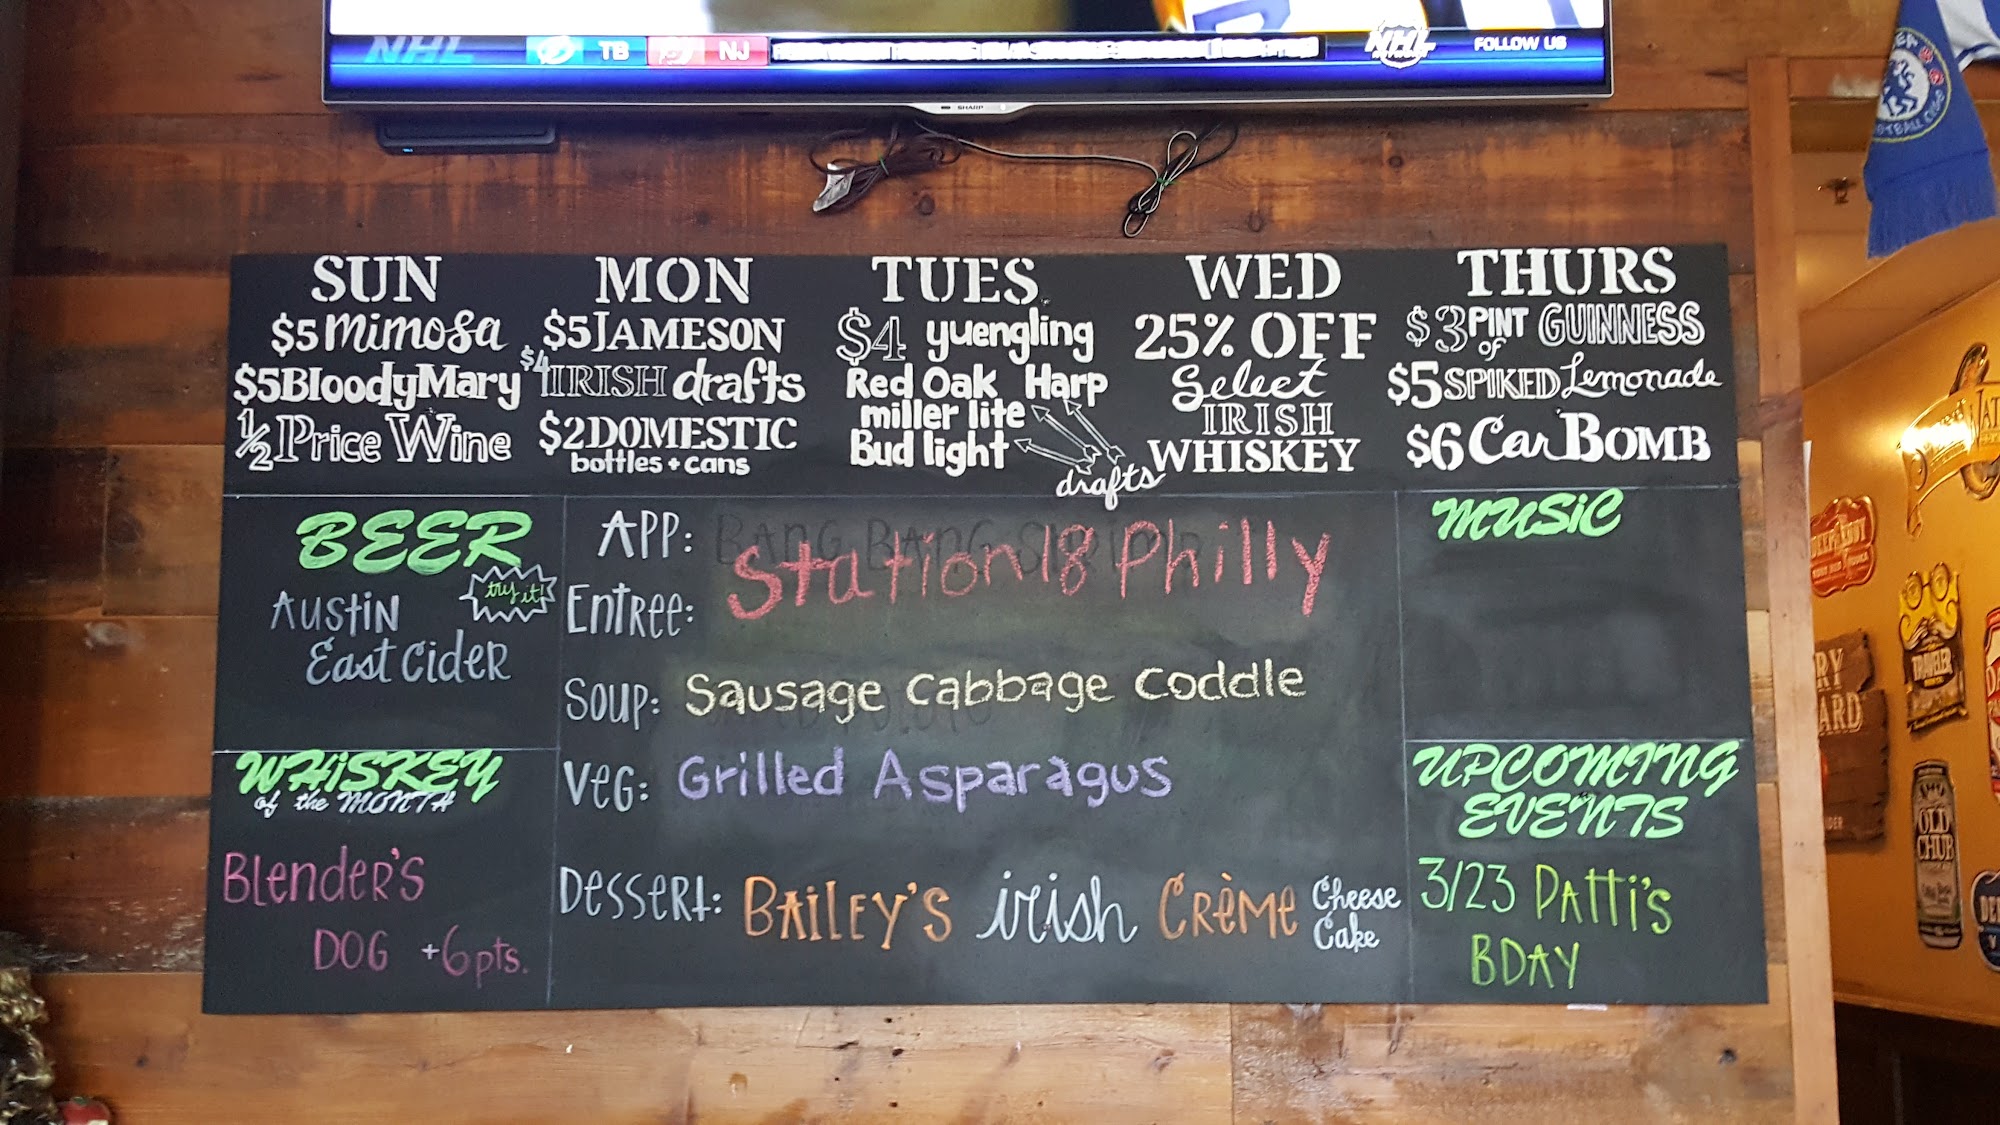 NHL TB NJ NHL FOLLOW US
SHARP
SUN
$5 Mimosa
$5 Bloody Mary
1/2 Price Wine
MON
$5 JAMESON
$4 IRISH drafts
$2 DOMESTIC
bottles + cans
TUES
$4 yuengling
Red Oak Harp
miller lite
Bud light
drafts
WED
25% OFF
Select
IRISH
WHISKEY
THURS
$3 PINT of GUINNESS
$5 SPIKED Lemonade
$6 Car BOMB
BEER
try it!
AUSTIN
East CIDER
WHISKEY
of the MONTH
Blender's
DOG +6pts.
APP: BANG BANG Shrimp
Station 18 Philly
Entree:
Soup: Sausage Cabbage Coddle
Veg: Grilled Asparagus
Dessert: BAILEY'S irish CRÈME Cheese
Cake
MUSIC
UPCOMING
EVENTS
3/23 PATTI'S
BDAY
OLD
CHUB
TRAVELER